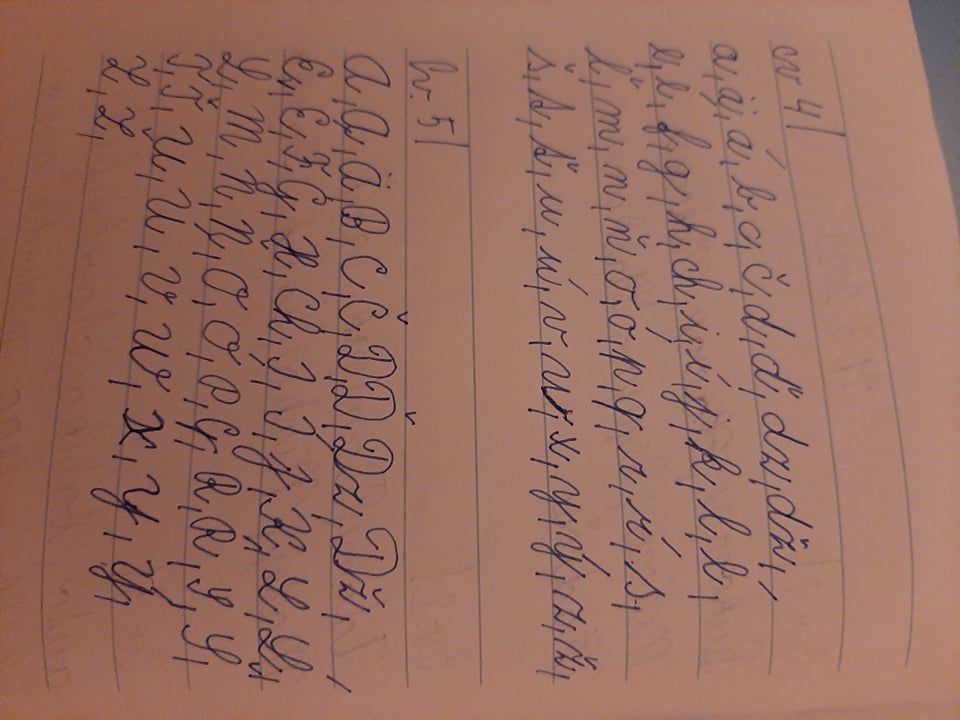 cv 4
a, ä, á, b, c, č, d, ď, dz, dž,
e, é, f, g, h, ch, i, í, j, k, l, ĺ,
ľ, m, n, ň, o, ó, p, q, r, ŕ, s,
š, t, ť, u, ú, v, w, x, y, ý, z, ž,
cv. 5
A, Á, Ä, B, C, Č, D, Ď, Dz, Dž,
E, É, F, G, H, Ch, I, Í, J, K, L, Ĺ,
Ľ, M, N, Ň, O, Ó, Ô, Q, R, Ŕ, S, Š,
T, Ť, U, Ú, V, W, X, Y, Ý,
Z, Ž,